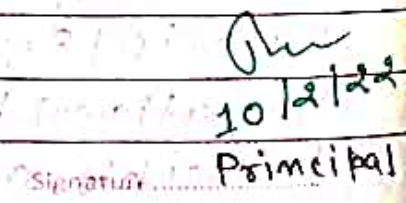 10/2/22
Signature.............. Principal